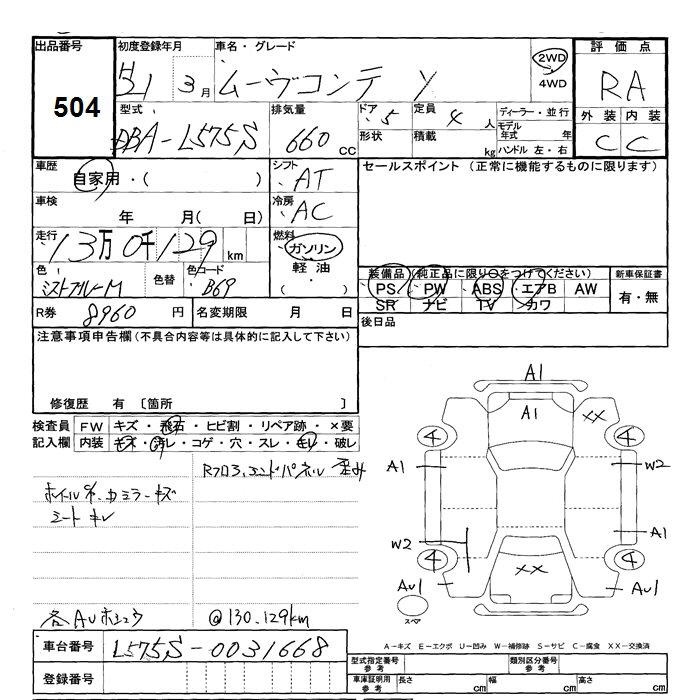 出品番号
504
初度登録年月
21 3月
車名・グレード
ムーヴコンテ
2WD
4WD
評価点
RA
外装 内装
C C
型式
DBA-L575S
排気量
660 cc
ドア 5
形状
定員 4 人
積載 kg
ディーラー・並行
モデル年式 年
ハンドル 左・右
車歴
自家用・( )
シフト AT
セールスポイント (正常に機能するものに限ります)
車検
年 月( 日)
冷房 AC
走行
13万0千129km
燃料
ガソリン
軽油
( ・ )
色
ミストブルーM
色替
色コード
B69
装備品 (純正品に限り○をつけてください)
PS PW ABS エアB AW
SR ナビ TV カワ
新車保証書
有・無
R券 8960 円
名変期限 月 日
後日品
注意事項申告欄(不具合内容等は具体的に記入して下さい)
修復歴 有 〔箇所 〕
検査員記入欄
FW キズ・飛石・ヒビ割・リペア跡・×要
内装 キズ・汚レ・コゲ・穴・スレ・キレ・破レ
ホイルC/、カミラーキズ
シートキレ
各AUホシュウ
@130.129km
A1
A1
XX
4
4
A1
W2
A1
W2
XX
4
4
AU1
AU1
スペア
A-キズ E-エクボ U-凹み W-補修跡 S-サビ C-腐食 XX-交換済
車台番号
L575S-0031668
登録番号
型式指定番号 参考
類別区分番号 参考
車庫証明用 参考
長さ cm
幅 cm
高さ cm